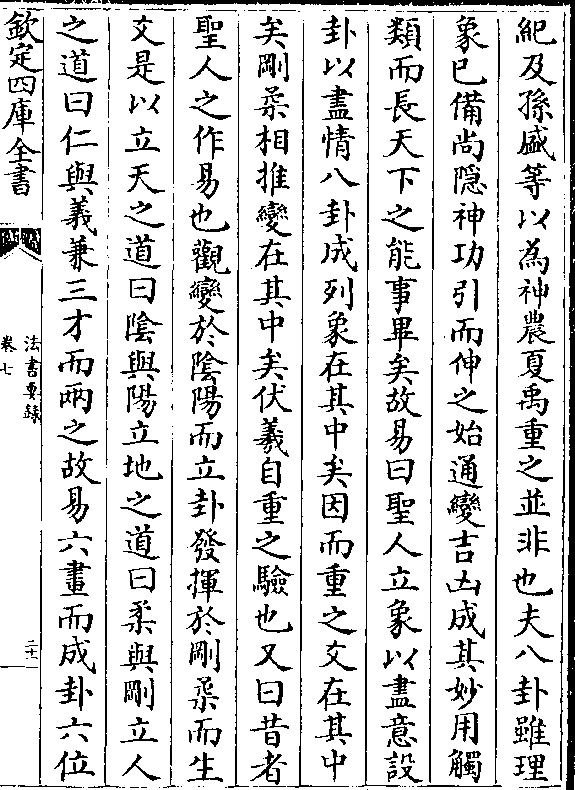 紀及孫盛等以為神農夏禹重之並非也夫八卦雖理
象已備尚隠神功引而伸之始通變吉凶成其妙用觸
類而長天下之能事畢矣故易曰聖人立象以盡意設
卦以盡情八卦成列象在其中矣因而重之爻在其中
矣剛柔相推變在其中矣伏羲自重之驗也又曰昔者
聖人之作易也觀變於陰陽而立卦發揮於剛柔而生
爻是以立天之道曰陰與陽立地之道曰柔與剛立人
之道曰仁與義兼三才而兩之故易六畫而成卦六位
欽定四庫全書
法書要録
卷七
二十